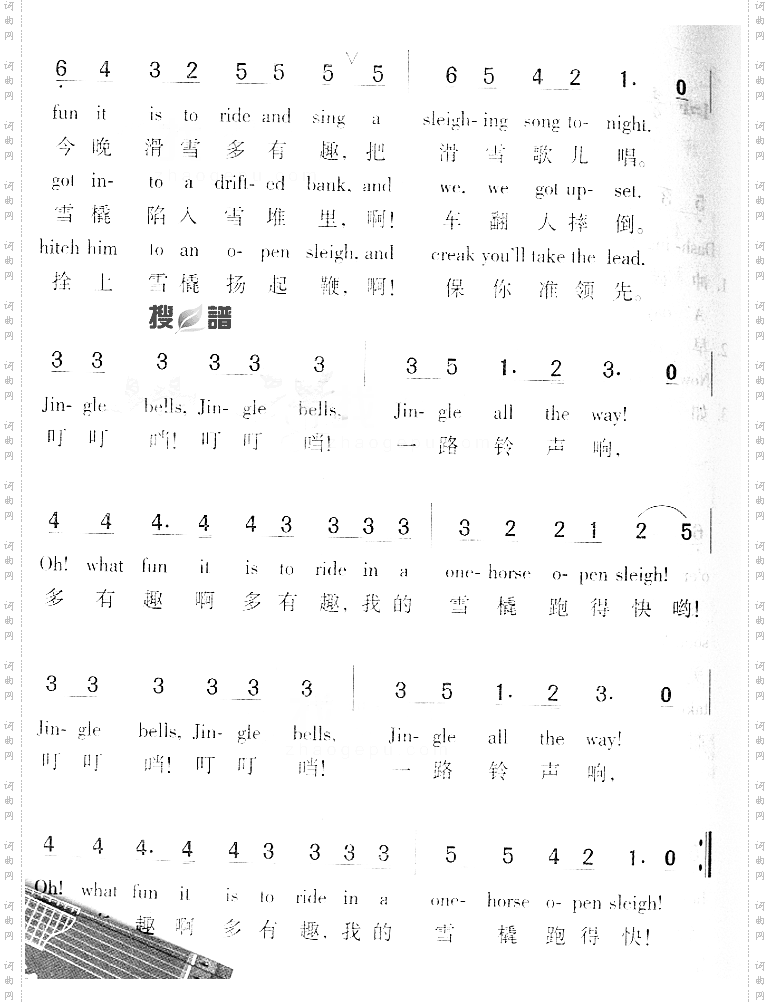 6 4 3 2 5 5 5 5 6 5 4 2 1. 0
fun it is to ride and sing a sleigh- ing song to- night.
今 晚 滑 雪 多 有 趣, 把 滑 雪 歌 儿 唱。
got in- to a drift- ed bank, and we, we got up- set.
雪 橇 陷 入 雪 堆 里, 啊! 车 翻 人 摔 倒。
hitch him to an o- pen sleigh, and creak you'll take the lead.
拴 上 雪 橇 扬 起 鞭, 啊! 保 你 准 领 先。
搜 譜
3 3 3 3 3 3 3 5 1. 2 3. 0
Jin- gle bells, Jin- gle bells, Jin- gle all the way!
叮 叮 噹! 叮 叮 噹! 一 路 铃 声 响,
4 4 4. 4 4 3 3 3 3 3 2 2 1 2 5
Oh! what fun it is to ride in a one- horse o- pen sleigh!
多 有 趣 啊 多 有 趣, 我 的 雪 橇 跑 得 快 哟!
3 3 3 3 3 3 3 5 1. 2 3. 0
Jin- gle bells, Jin- gle bells, Jin- gle all the way!
叮 叮 噹! 叮 叮 噹! 一 路 铃 声 响,
4 4 4. 4 4 3 3 3 3 5 5 4 2 1. 0
Oh! what fun it is to ride in a one- horse o- pen sleigh!
趣 啊 多 有 趣, 我 的 雪 橇 跑 得 快!
词曲网